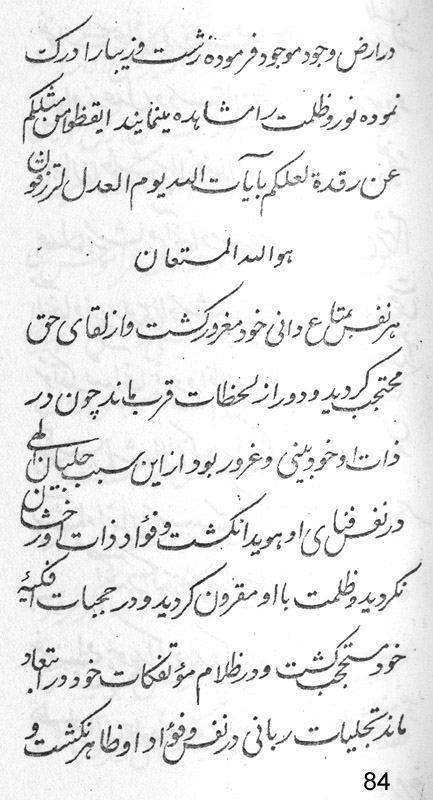 در ارض وجود موجود فرموده زشت و زیبا را درک
نموده نور و ظلمت را مشاهده مینمایند ایقظوا من مثلکم
عن رقدة لعلکم بآیات الله یوم العدل لترزقون
هو الله المستعان
هر نفس بمتاع دانی خود مغرور گشت و از لقای حق
محتجب گردید و دور از لحظات قرب ماند چون در
ذات او خودبینی و غرور بود از این سبب جلیان الهی
در نفس فنای او هویدا نگشت و فؤاد ذات او رخشان
نگردیده و ظلمت با او مقرون گردید و در حجبات افکیّهٔ
خود مستحجب گشت و در ظلام مؤتفکات خود در ابتعاد
ماند تجلیات ربانی در نفس و فؤاد او ظاهر نگشت و
84